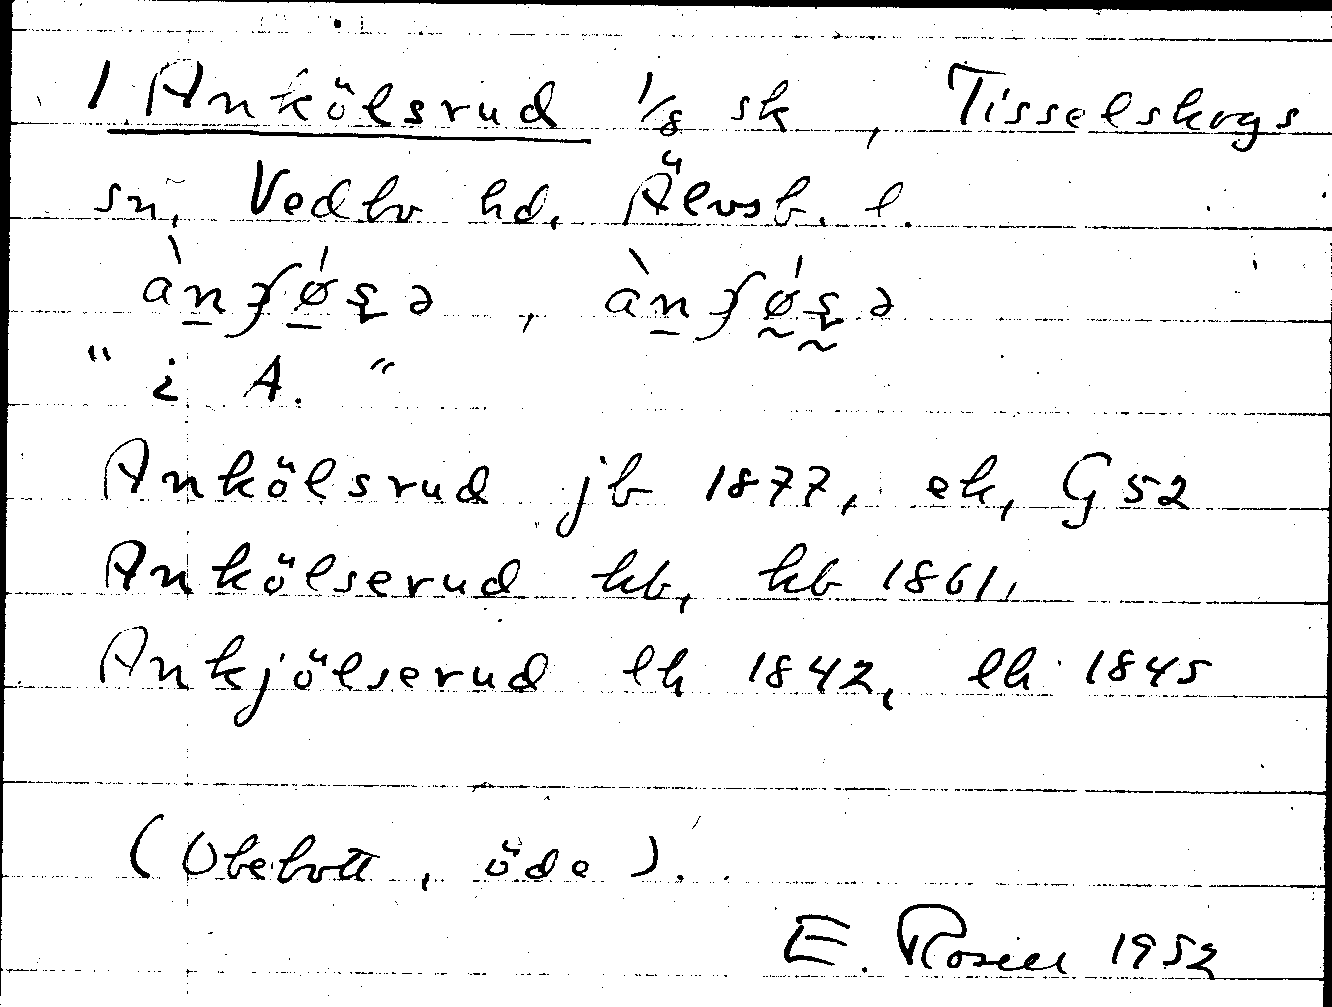 1 Ankölsrud 1/8 sk, Tisselskogs
sn, Vedbo hd, Älvsb. l.
" i A. "
Ankölsrud jb 1877, ek, G 52
Ankölserud kb, hb 1861,
Ankjölserud lh 1842, lh 1845
(Obebott, öde).
E. Rosell 1952